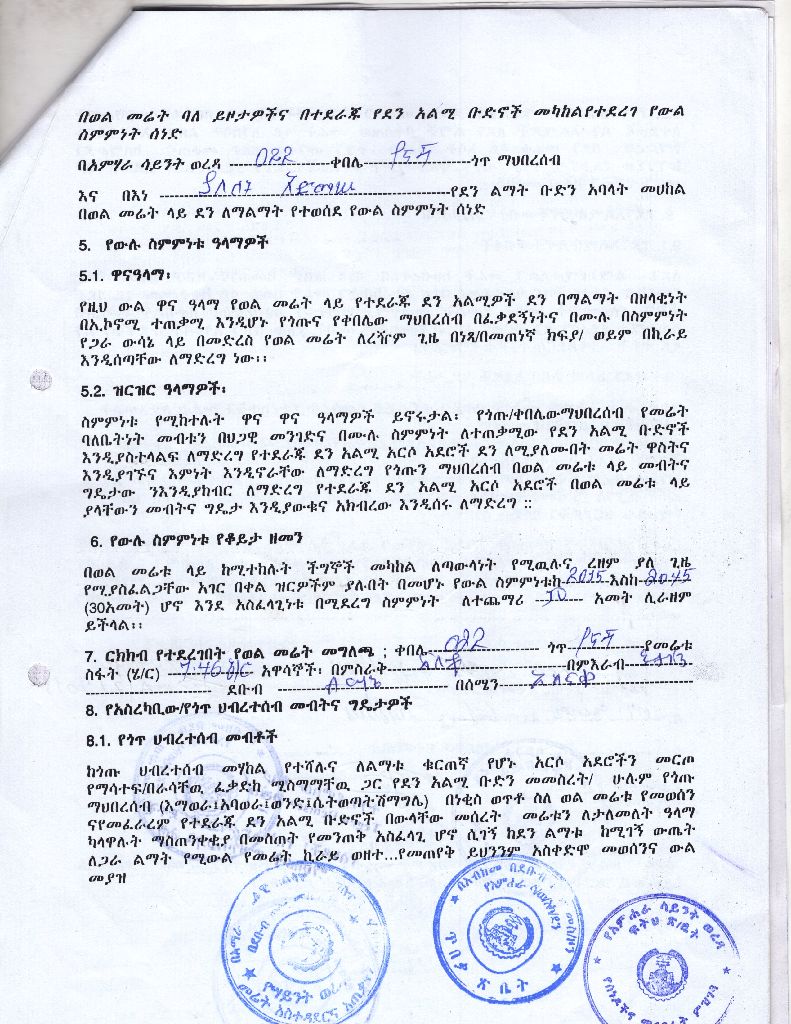 በወል መሬት ባለ ይዞታዎችና በተደራጁ የደን አልሚ ቡድኖች መካከልየተደረገ የውል
ስምምነት ሰነድ
በአምሃራ ሳይንት ወረዳ ------------ 022 -------ቀበሌ------------------ጎጥ ማህበረሰብ
እና በእነ --------------------------------የደን ልማት ቡድን አባላት መሀከል
በወል መሬት ላይ ደን ለማልማት የተወሰደ የውል ስምምነት ሰነድ
5. የውሉ ስምምነቱ ዓላማዎች
5.1. ዋናዓላማ፡
የዚህ ውል ዋና ዓላማ የወል መሬት ላይ የተደራጁ ደን አልሚዎች ደን በማልማት በዘላቂነት
በኢኮኖሚ ተጠቃሚ እንዲሆኑ የጎጡና የቀበሌው ማህበረሰብ በፈቃደኝነትና በሙሉ በስምምነት
የጋራ ውሳኔ ላይ በመድረስ የወል መሬት ለረዥም ጊዜ በነጻ/በመጠነኛ ክፍያ/ ወይም በኪራይ
እንዲሰጣቸው ለማድረግ ነው፡፡
5.2. ዝርዝር ዓላማዎች፡
ስምምነቱ የሚከተሉት ዋና ዋና ዓላማዎች ይኖሩታል፡ የጎጡ/ቀበሌውማህበረሰብ የመሬት
ባለቤትነት መብቱን በህጋዊ መንገድና በሙሉ ስምምነት ለተጠቃሚው የደን አልሚ ቡድኖች
እንዲያስተላልፍ ለማድረግ የተደራጁ ደን አልሚ አርሶ አደሮች ደን ለሚያለሙበት መሬት ዋስትና
እንዲያገኙና እምነት እንዲኖራቸው ለማድረግ የጎጡን ማህበረሰብ በወል መሬቱ ላይ መብትና
ግዴታው ንእንዲያከብር ለማድረግ የተደራጁ ደን አልሚ አርሶ አደሮች በወል መሬቱ ላይ
ያላቸውን መብትና ግዴታ እንዲያውቁና አክብረው እንዲሰሩ ለማድረግ ::
6. የውሉ ስምምነቱ የቆይታ ዘመን
በወል መሬቱ ላይ ከሚተከሉት ችግኞች መካከል ለጣውላነት የሚዉሉና ረዘም ያለ ጊዜ
የሚያስፈልጋቸው አገር በቀል ዝርዎችም ያሉበት በመሆኑ የውል ስምምነቱከ-2015-እስከ-2045
(30አመት) ሆኖ እንደ አስፈላጊነቱ በሚደረግ ስምምነት ለተጨማሪ -------- አመት ሊራዘም
ይችላል፡፡
7. ርክክብ የተደረገበት የወል መሬት መግለጫ ; ቀበሌ----022---------- ጎጥ ------------የመሬቱ
ስፋት (ሄ/ር) ---7.46-------- አዋሳኞች፡ በምስራቅ--------------------በምእራብ--------
------------------ ደቡብ ------------------------ በሰሜን------------------------
8. የአስረካቢው/የጎጥ ህብረተሰብ መብትና ግዴታዎች
8.1. የጎጥ ህብረተሰብ መብቶች
ከጎጡ ህብረተሰብ መሃከል የተሻሉና ለልማቱ ቁርጠኛ የሆኑ አርሶ አደሮችን መርጦ
የማሳተፍ/በራሳቸዉ ፈቃድከ ሚስማማቸዉ ጋር የደን አልሚ ቡድን መመስረት/ ሁሉም የጎጡ
ማህበረሰብ (እማወራ፤አባወራ፤ወንድ፤ሴትወጣትሽማግሌ) በነቂስ ወጥቶ ስለ ወል መሬቱ የመወሰን
ናየመፈራረም የተደራጁ ደን አልሚ ቡድኖች በውላቸው መሰረት መሬቱን ለታለመለት ዓላማ
ካላዋሉት ማስጠንቀቂያ በመስጠት የመንጠቅ አስፈላጊ ሆኖ ሲገኝ ከደን ልማቱ ከሚገኝ ውጤት
ለጋራ ልማት የሚውል የመሬት ኪራይ ወዘተ...የመጠየቅ ይህንንም አስቀድሞ መወሰንና ውል
መያዝ